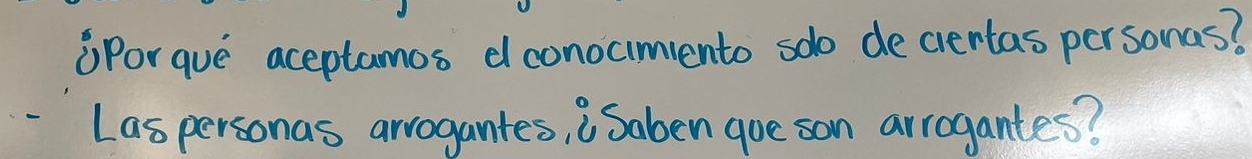 ¿Por qué aceptamos el conocimiento solo de ciertas personas?
- Las personas arrogantes, ¿Saben que son arrogantes?